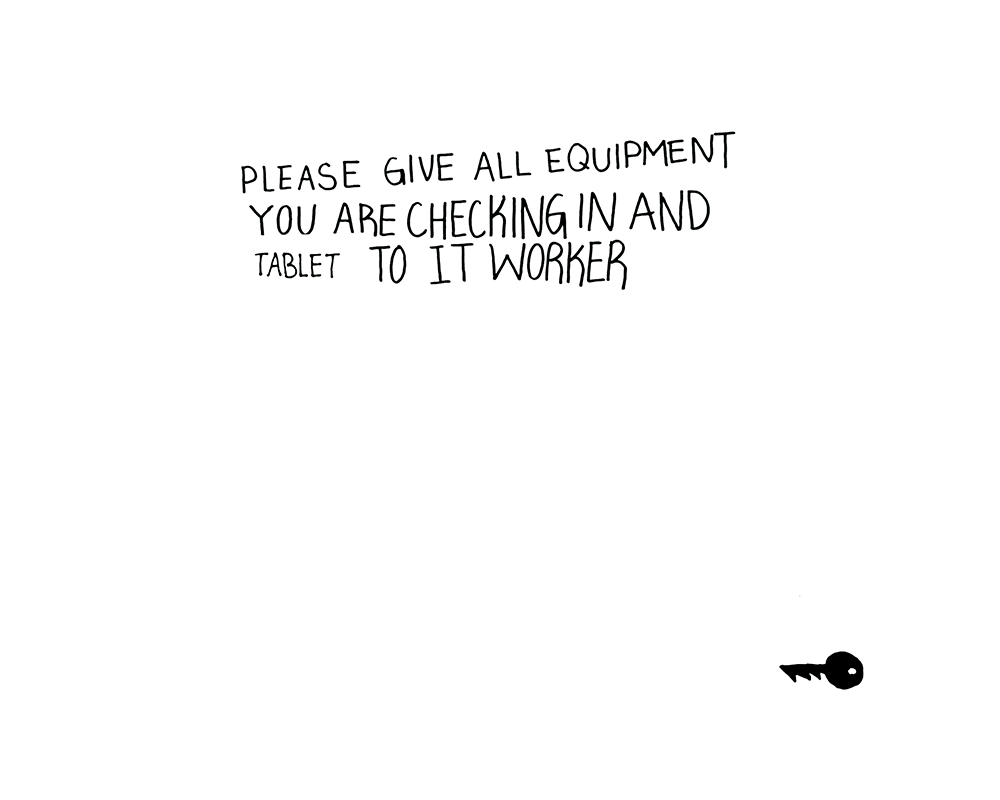 PLEASE GIVE ALL EQUIPMENT
YOU ARE CHECKING IN AND
TABLET TO IT WORKER